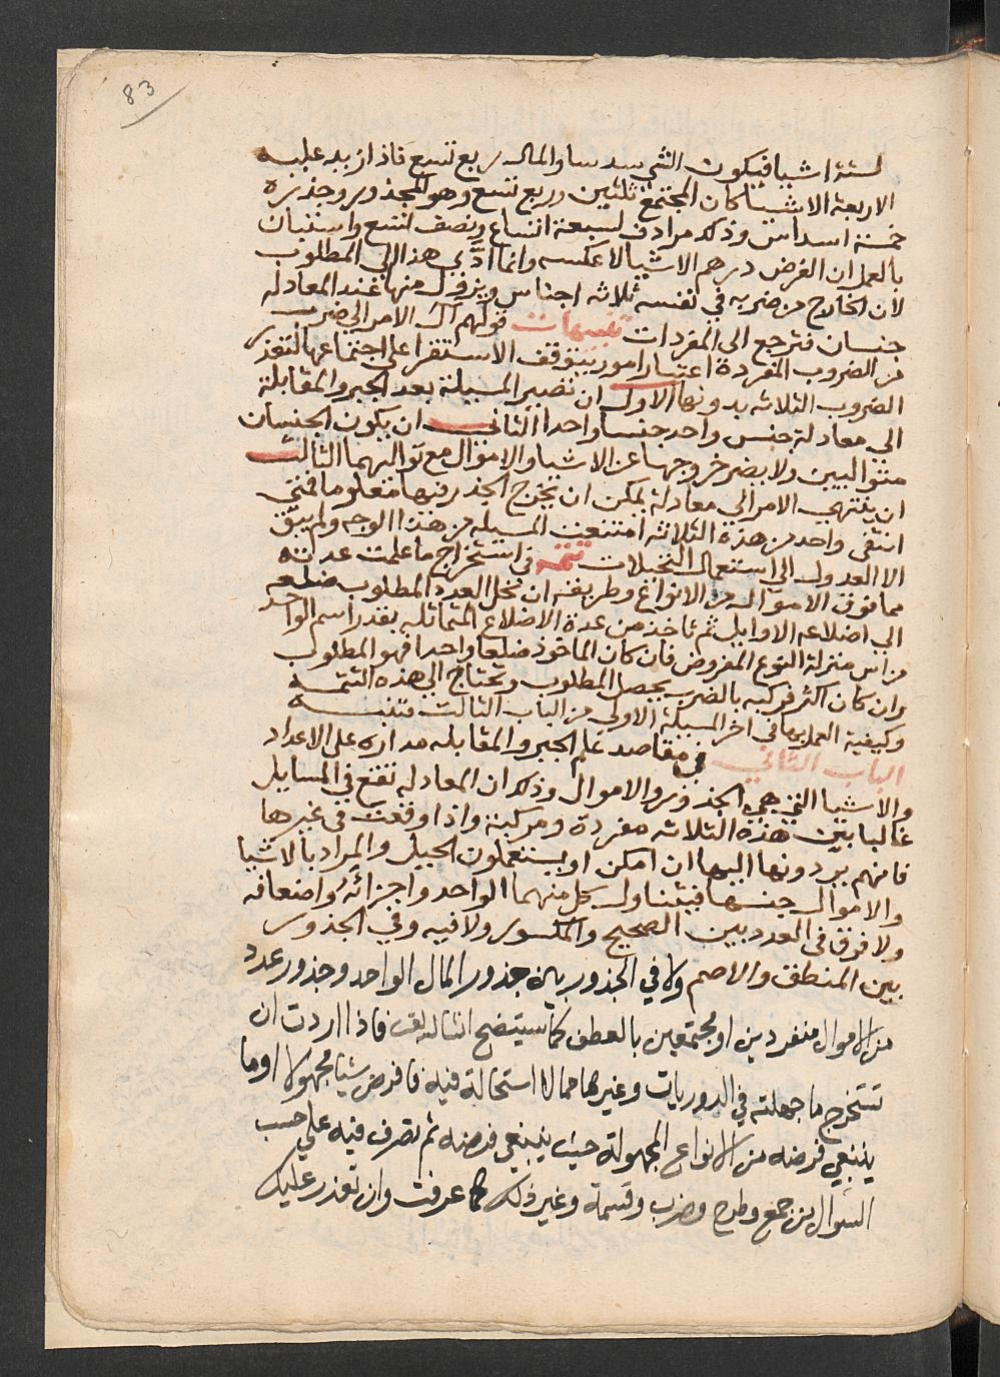 83
لستة اشيا فيكون الشي سدسا والمال ربع تسع فاذا زيد عليه
الاربعة الاشيا كان المجتمع ثلثين وربع تسع وهو المجذور وجذره
خمسة اسداس وذلك مرادف لسبعة اتساع ونصف تسع واستبان
بالعمل ان الفرض درهم الاشيا لا عكسه وانما ادّى هذا الى المطلوب
لان الخارج من ضربه في نفسه ثلاثه اجناس ويزول منها عند المعادله
جنسان فترجع الى المفردات تنبيهات قولهم ال الامر الى ضرب
من الضروب المفردة اعتبار امور يتوقف الاستقرا على اجتماعها لتعذر
الضروب الثلاثه بدونها الاول ان تصير المسيلة بعد الجبر والمقابلة
الى معادلة جنس واحد جنسا واحدا الثاني ان يكون الجنسان
متواليين ولا يضر خروجها عن الاشيا والاموال مع تواليهما الثالث
ان ينتهي الامر الى معادلة يمكن ان يخرج الجذر فيها معلوما فمتى
انتفى واحد من هذة الثلاثه امتنعت المسيله من هذا الوجه ولم يبق
الا العدول الى استعمال التخيلات تتمه في استخراج ما علمت عدته
مما فوق الاموال من الانواع وطريقه ان تحل العدد المطلوب ضلعه
الى اضلاعه الاوايل ثم تاخذ من عدة الاضلاع المتماثله بقدر اسم الواحد
من اس منزلة النوع المفروض فان كان الماخوذ ضلعا واحدا فهو المطلوب
وان كان اكثر فركبه بالضرب يحصل المطلوب وتحتاج الى هذه التتمه
وكيفية العمل بها في اخر المسيلة الاولى من الباب الثالث فتنبه
الباب الثاني في مقاصد علم الجبر والمقابله مداره على الاعداد
والاشيا التي هي الجذور والاموال وذلك ان المعادله تقع في المسايل
غالبا بين هذه الثلاثه مفردة ومركبة واذا وقعت في غيرها
فانهم يردونها اليها ان امكن او يستعملون الحيل والمراد بالاشيا
والاموال جنسها فيتناول كل منهما الواحد واجزائه واضعافه
ولا فرق في العدد بين الصحيح والمكسور ولا فيه وفي الجذور
بين المنطق والاصم ولا في الجذور بين جذور المال الواحد وجذور عدد
من الاموال منفردين او مجتمعين بالعطف كما سيتضح فاذا اردت ان
تستخرج ما جهلته في الدوريات وغيرها مما لا استحالة فيه فافرض شيا مجهولا او ما
ينبغي فرضه من الانواع المجهولة حيث ينبغي فرضه ثم تصرف فيه على حسب
السوال من جمع وطرح وضرب وقسمة وغير ذلك كما عرفت وان تعذر عليك